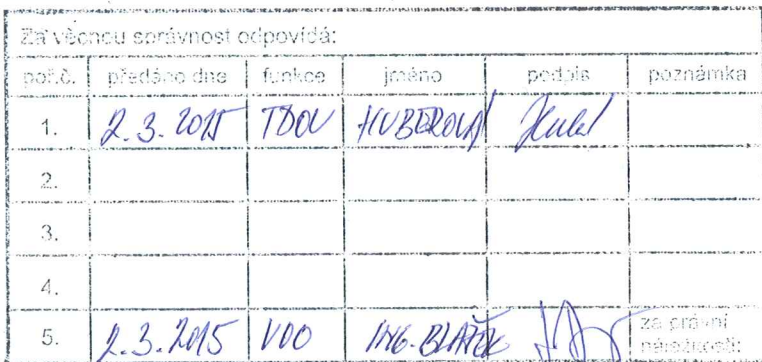 Za věcnou správnost odpovídá:
poř.č. předáno dne funkce jméno podpis poznámka
1. 2.3.2015 TDOU HUBEROVÁ
2.
3.
4.
5. 2.3.2015 VOO ING. BLAŽEK za právní
náležitosti: